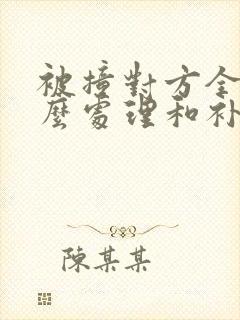 被撞對方全
麼處理和补
陳某某